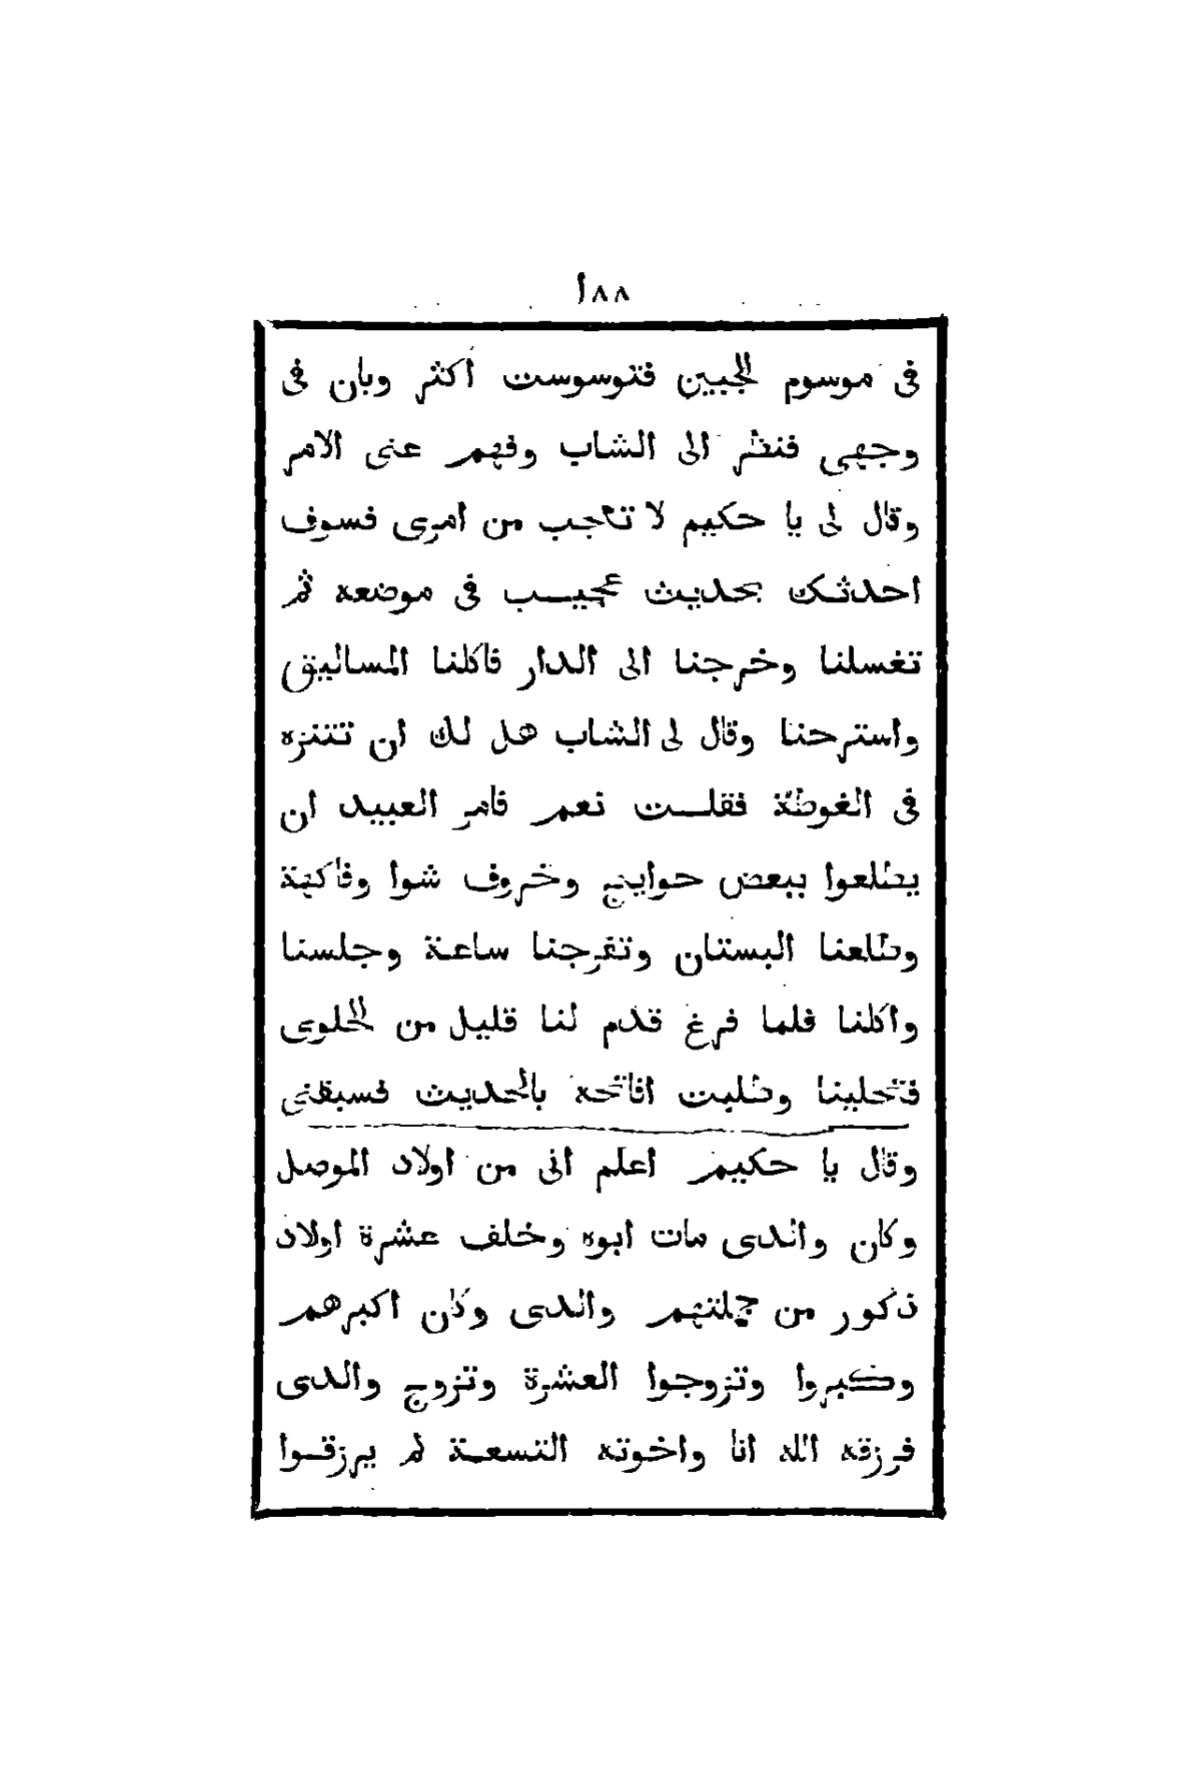 ١٨٨
فى موسوم الجبين فتوسوست أكثر وبان فى
وجهى فنظر الى الشاب وفهم عنى الامر
وقال لى يا حكيم لا تتعجب من امرى فسوف
احدثك بحديث عجيب فى موضعه ثم
تغسلنا وخرجنا الى الدار فاكلنا المساليق
واسترحنا وقال لى الشاب هل لك ان تتنزه
فى الغوطة فقلت نعم فامر العبيد ان
يطلعوا ببعض حوايج وخروف شوا وفاكهة
وطلعنا البستان وتفرجنا ساعة وجلسنا
واكلنا فلما فرغ قدم لنا قليل من الحلوى
فتحلينا وطلبت افاتحه بالحديث فسبقنى
وقال يا حكيم اعلم انى من اولاد الموصل
وكان والدى مات ابوه وخلف عشرة اولاد
ذكور من جملتهم والدى وكان اكبرهم
وكبروا وتزوجوا العشرة وتزوج والدى
فرزقه الله انا واخوته التسعة لم يرزقوا